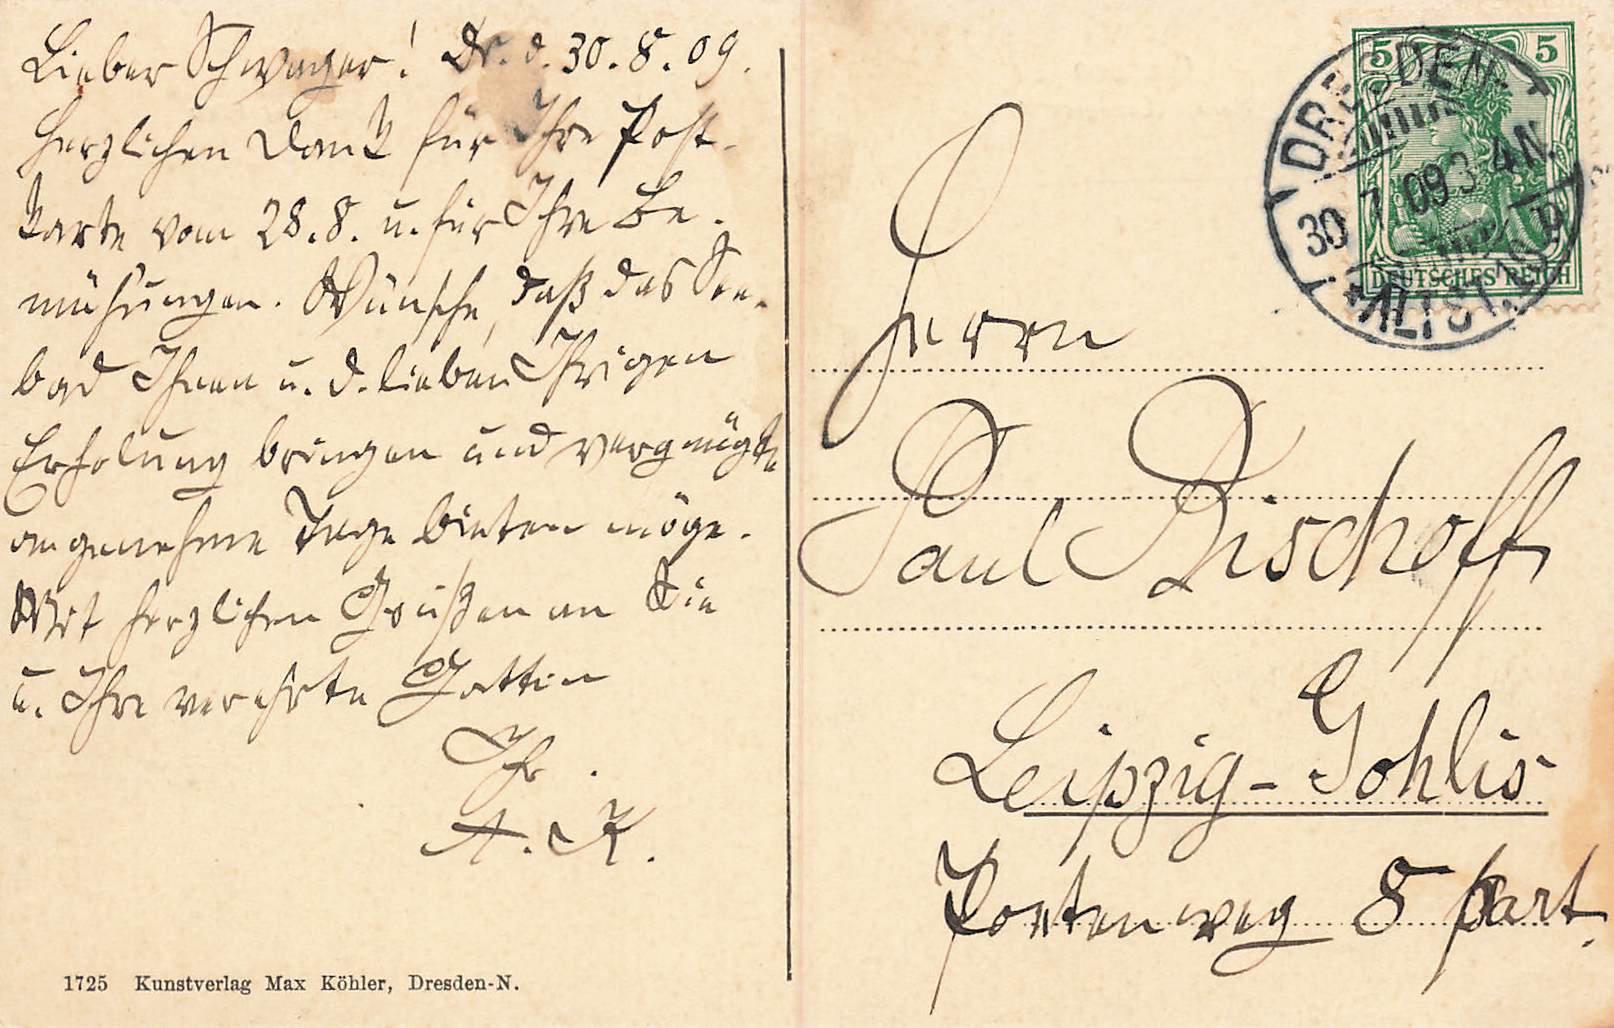 Lieber Schwager! Dr. d. 30. 8. 09.
Herzlichen Dank für Ihre Post-
karte vom 28. 8. u. für Ihre Be-
mühungen. Wünsche, daß das See-
bad Ihnen u. d. lieben Ihrigen
Erholung bringen und vergnügte
angenehme Tage bieten möge.
Mit herzlichen Grüßen an Sie
u. Ihre verehrte Gattin
Ihr
A. K.
1725 Kunstverlag Max Köhler, Dresden-N.
5 5
DEUTSCHES REICH
DRESDEN
30 7 09 3-4N.
*ALTST.
Herrn
Paul Bischoff
Leipzig-Gohlis
8 part.